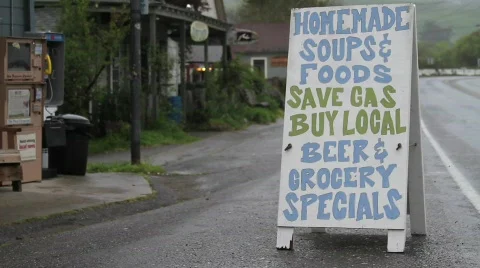 HOMEMADE
SOUPS &
FOODS
SAVE GAS
BUY LOCAL
BEER &
GROCERY
SPECIALS